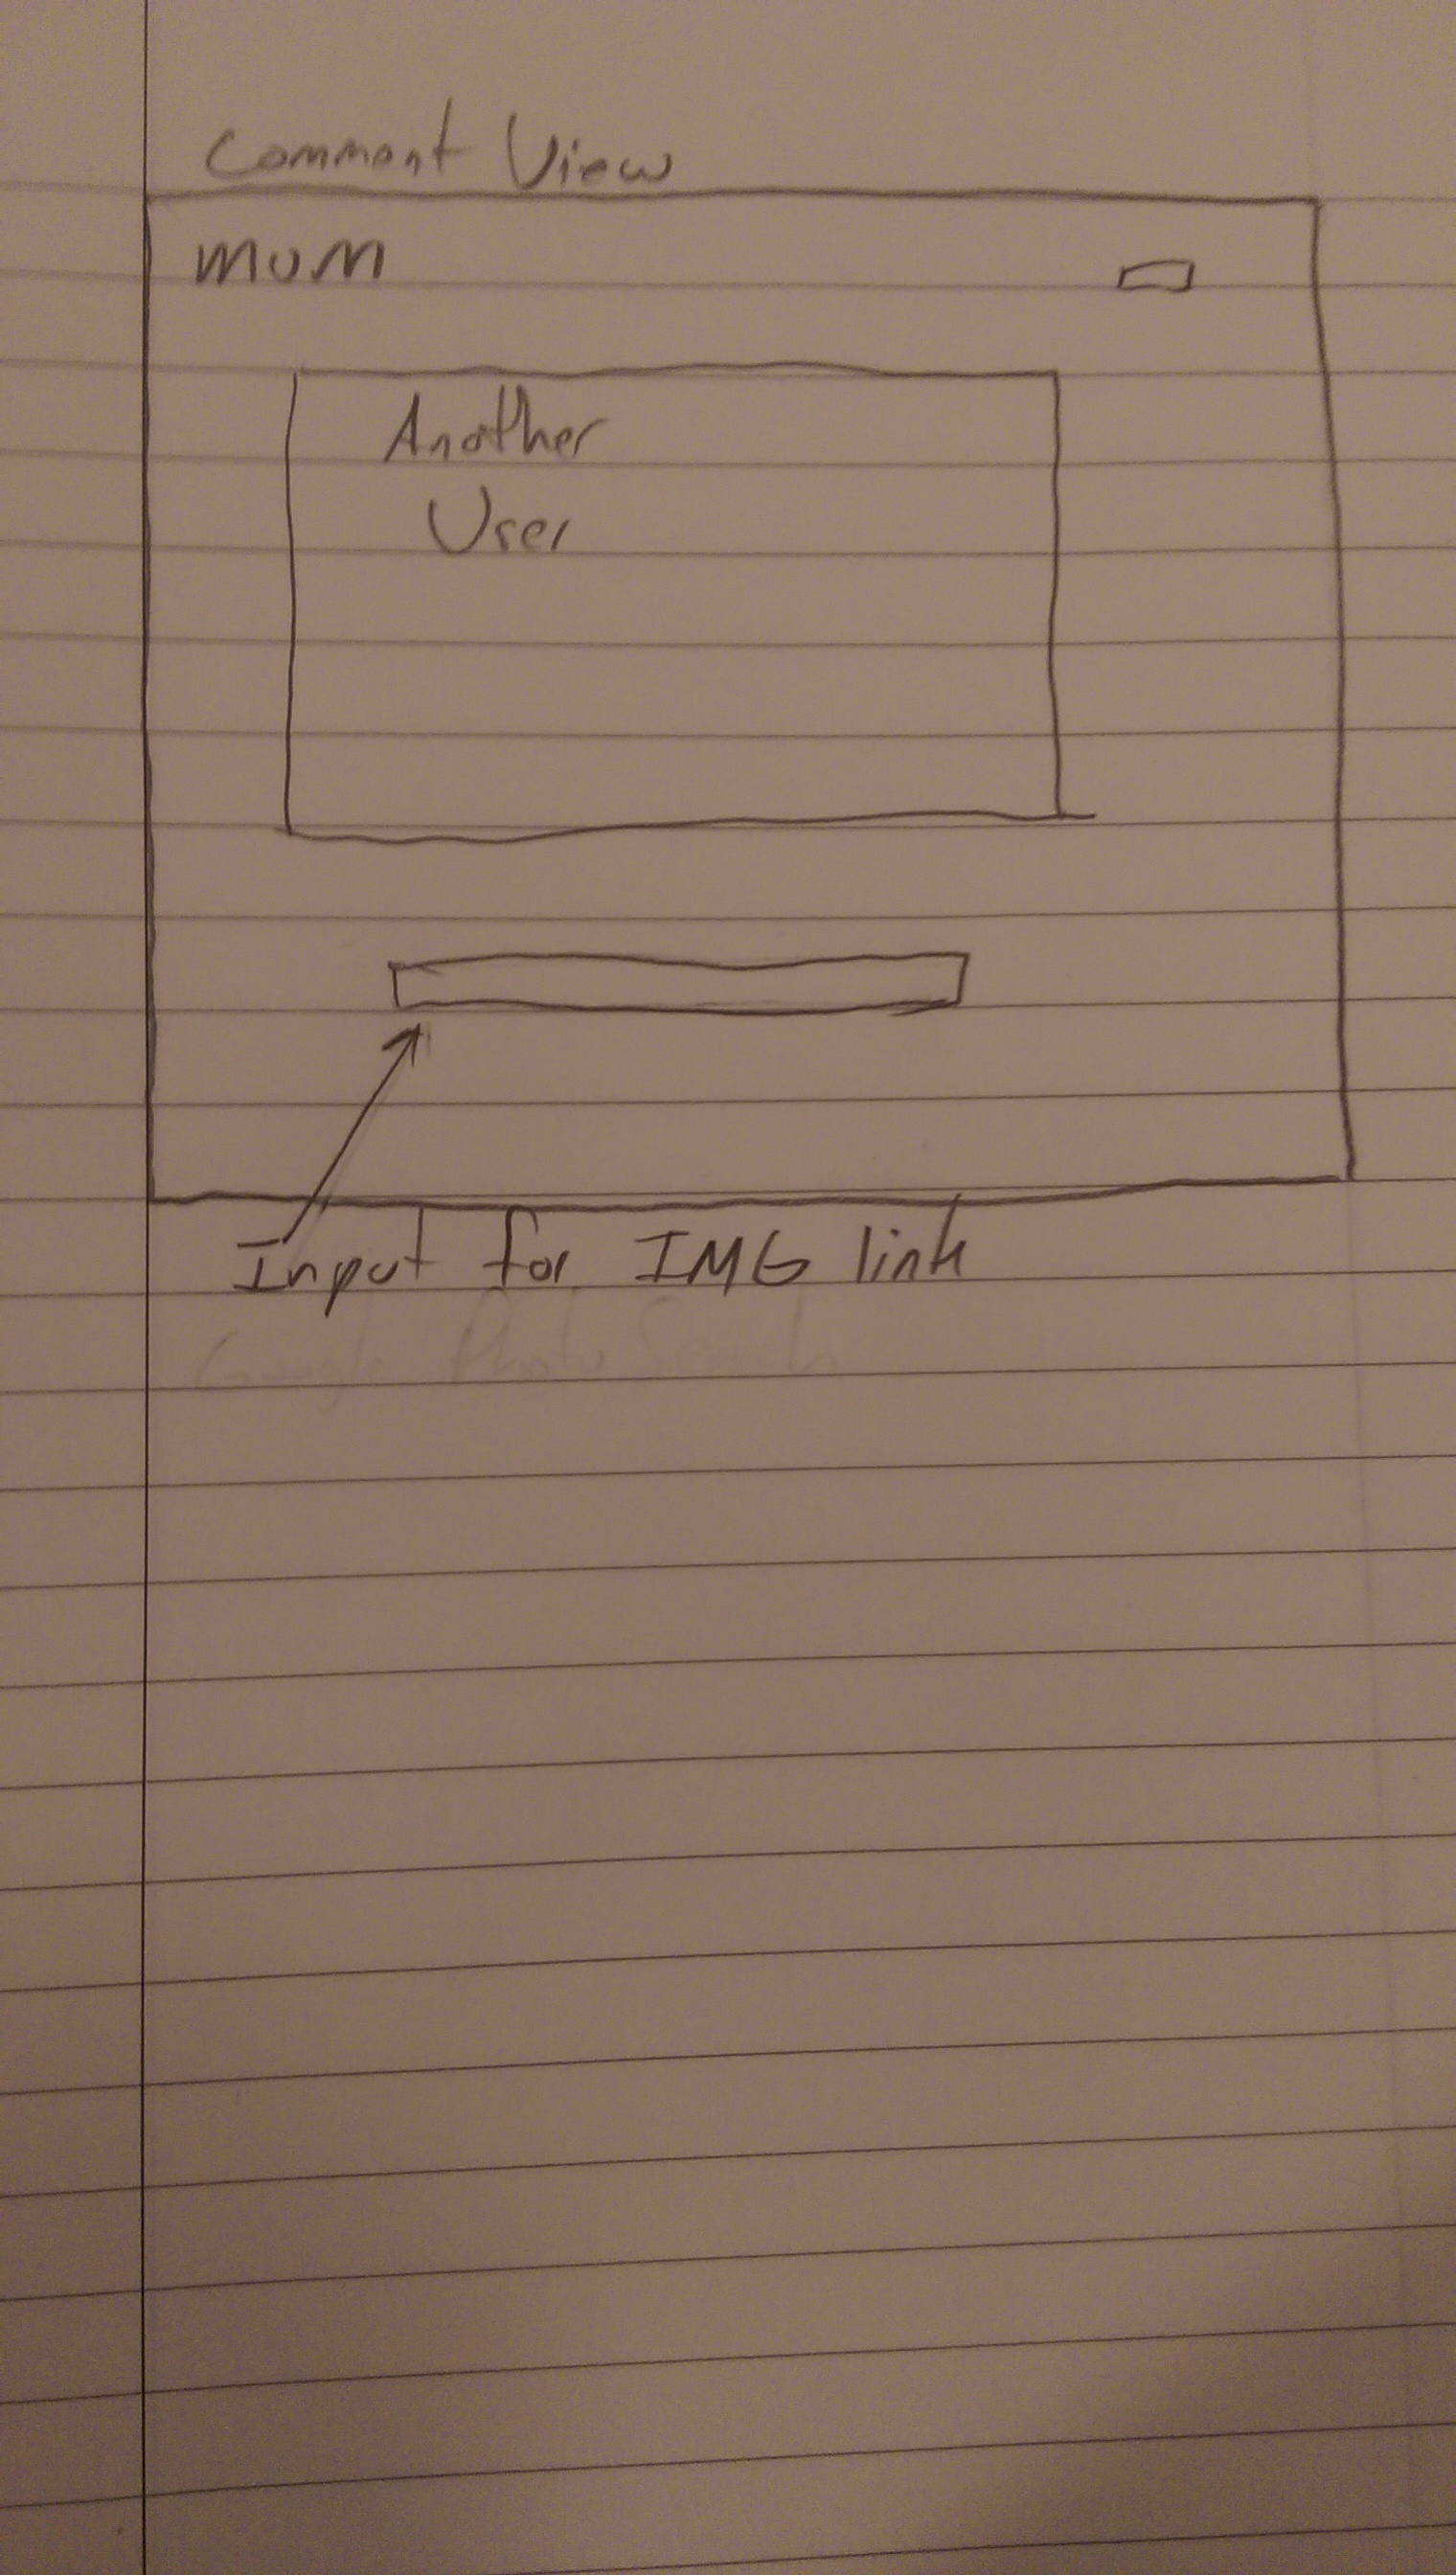 Comment View
MUM
Another
User
Input for IMG link
Google Photo Search